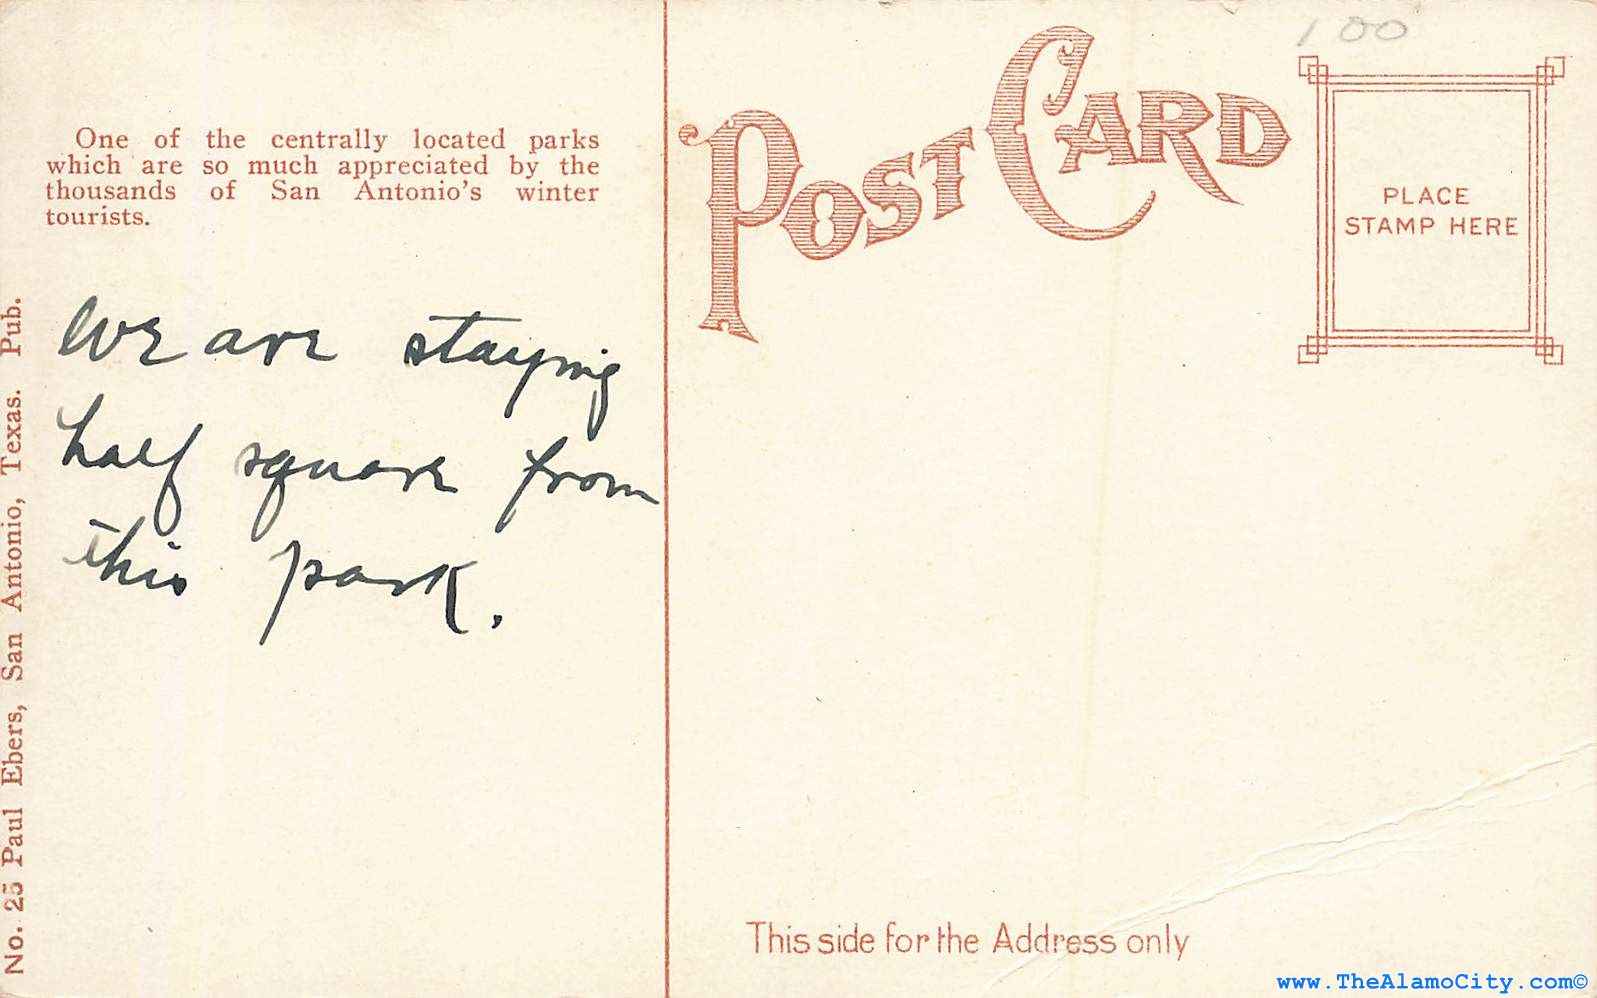 One of the centrally located parks
which are so much appreciated by the
thousands of San Antonio's winter
tourists.
We are staying
half square from
this park.
No. 25 Paul Ebers, San Antonio, Texas. Pub.
POST CARD
100
PLACE
STAMP HERE
This side for the Address only
www.TheAlamoCity.com©